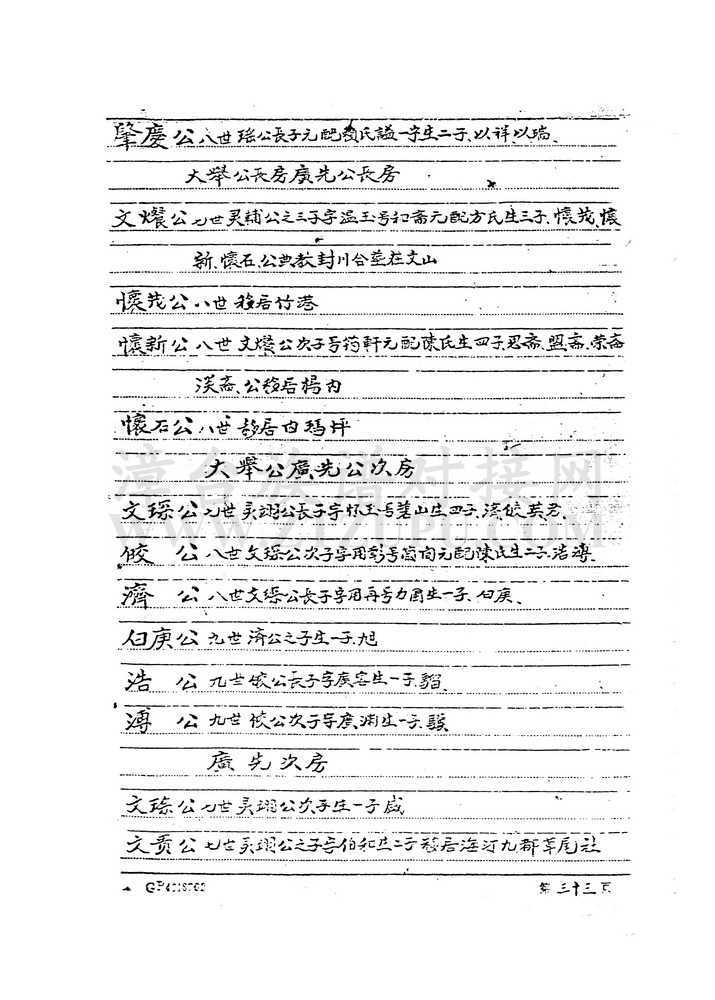 肇慶公 八世瑶公長子元配顏氏謚一字生二子、以祥、以瑞、
大舉公長房廣先公長房
文燦公 七世昊輔公之三子字温玉号和斋元配方氏生三子、懷茂、懷
新、懷石、公典教封川合塟在文山
懷茂公 八世移居竹港
懷新公 八世文燦公次子号筠軒元配陳氏生四子、思斋、盟斋、荣斋
渓斋、公移居楊内
懷石公 八世移居白瑪坪
大舉公廣先公次房
文琛公 七世昊翊公長子字怀玉号碧山生四子、濟、佼、英、君、
佼公 八世文琛公次子字用 号 元配陳氏生二子、浩、溥、
濟公 八世文琛公長子字用再号力圃生一子、白庚、
白庚公 九世濟公之子生一子、旭
浩公 九世佼公長子字廣容生一子、貂、
溥公 九世佼公次子字廣渊生一子、
廣先次房
文琮公 七世昊翊公次子生一子咸
文贡公 七世昊翊公之子字伯和生二子移居海汀九都草尾社
GP4219702
第三十三頁
漳台族谱对接网
WWW.ZTZUPU.COM